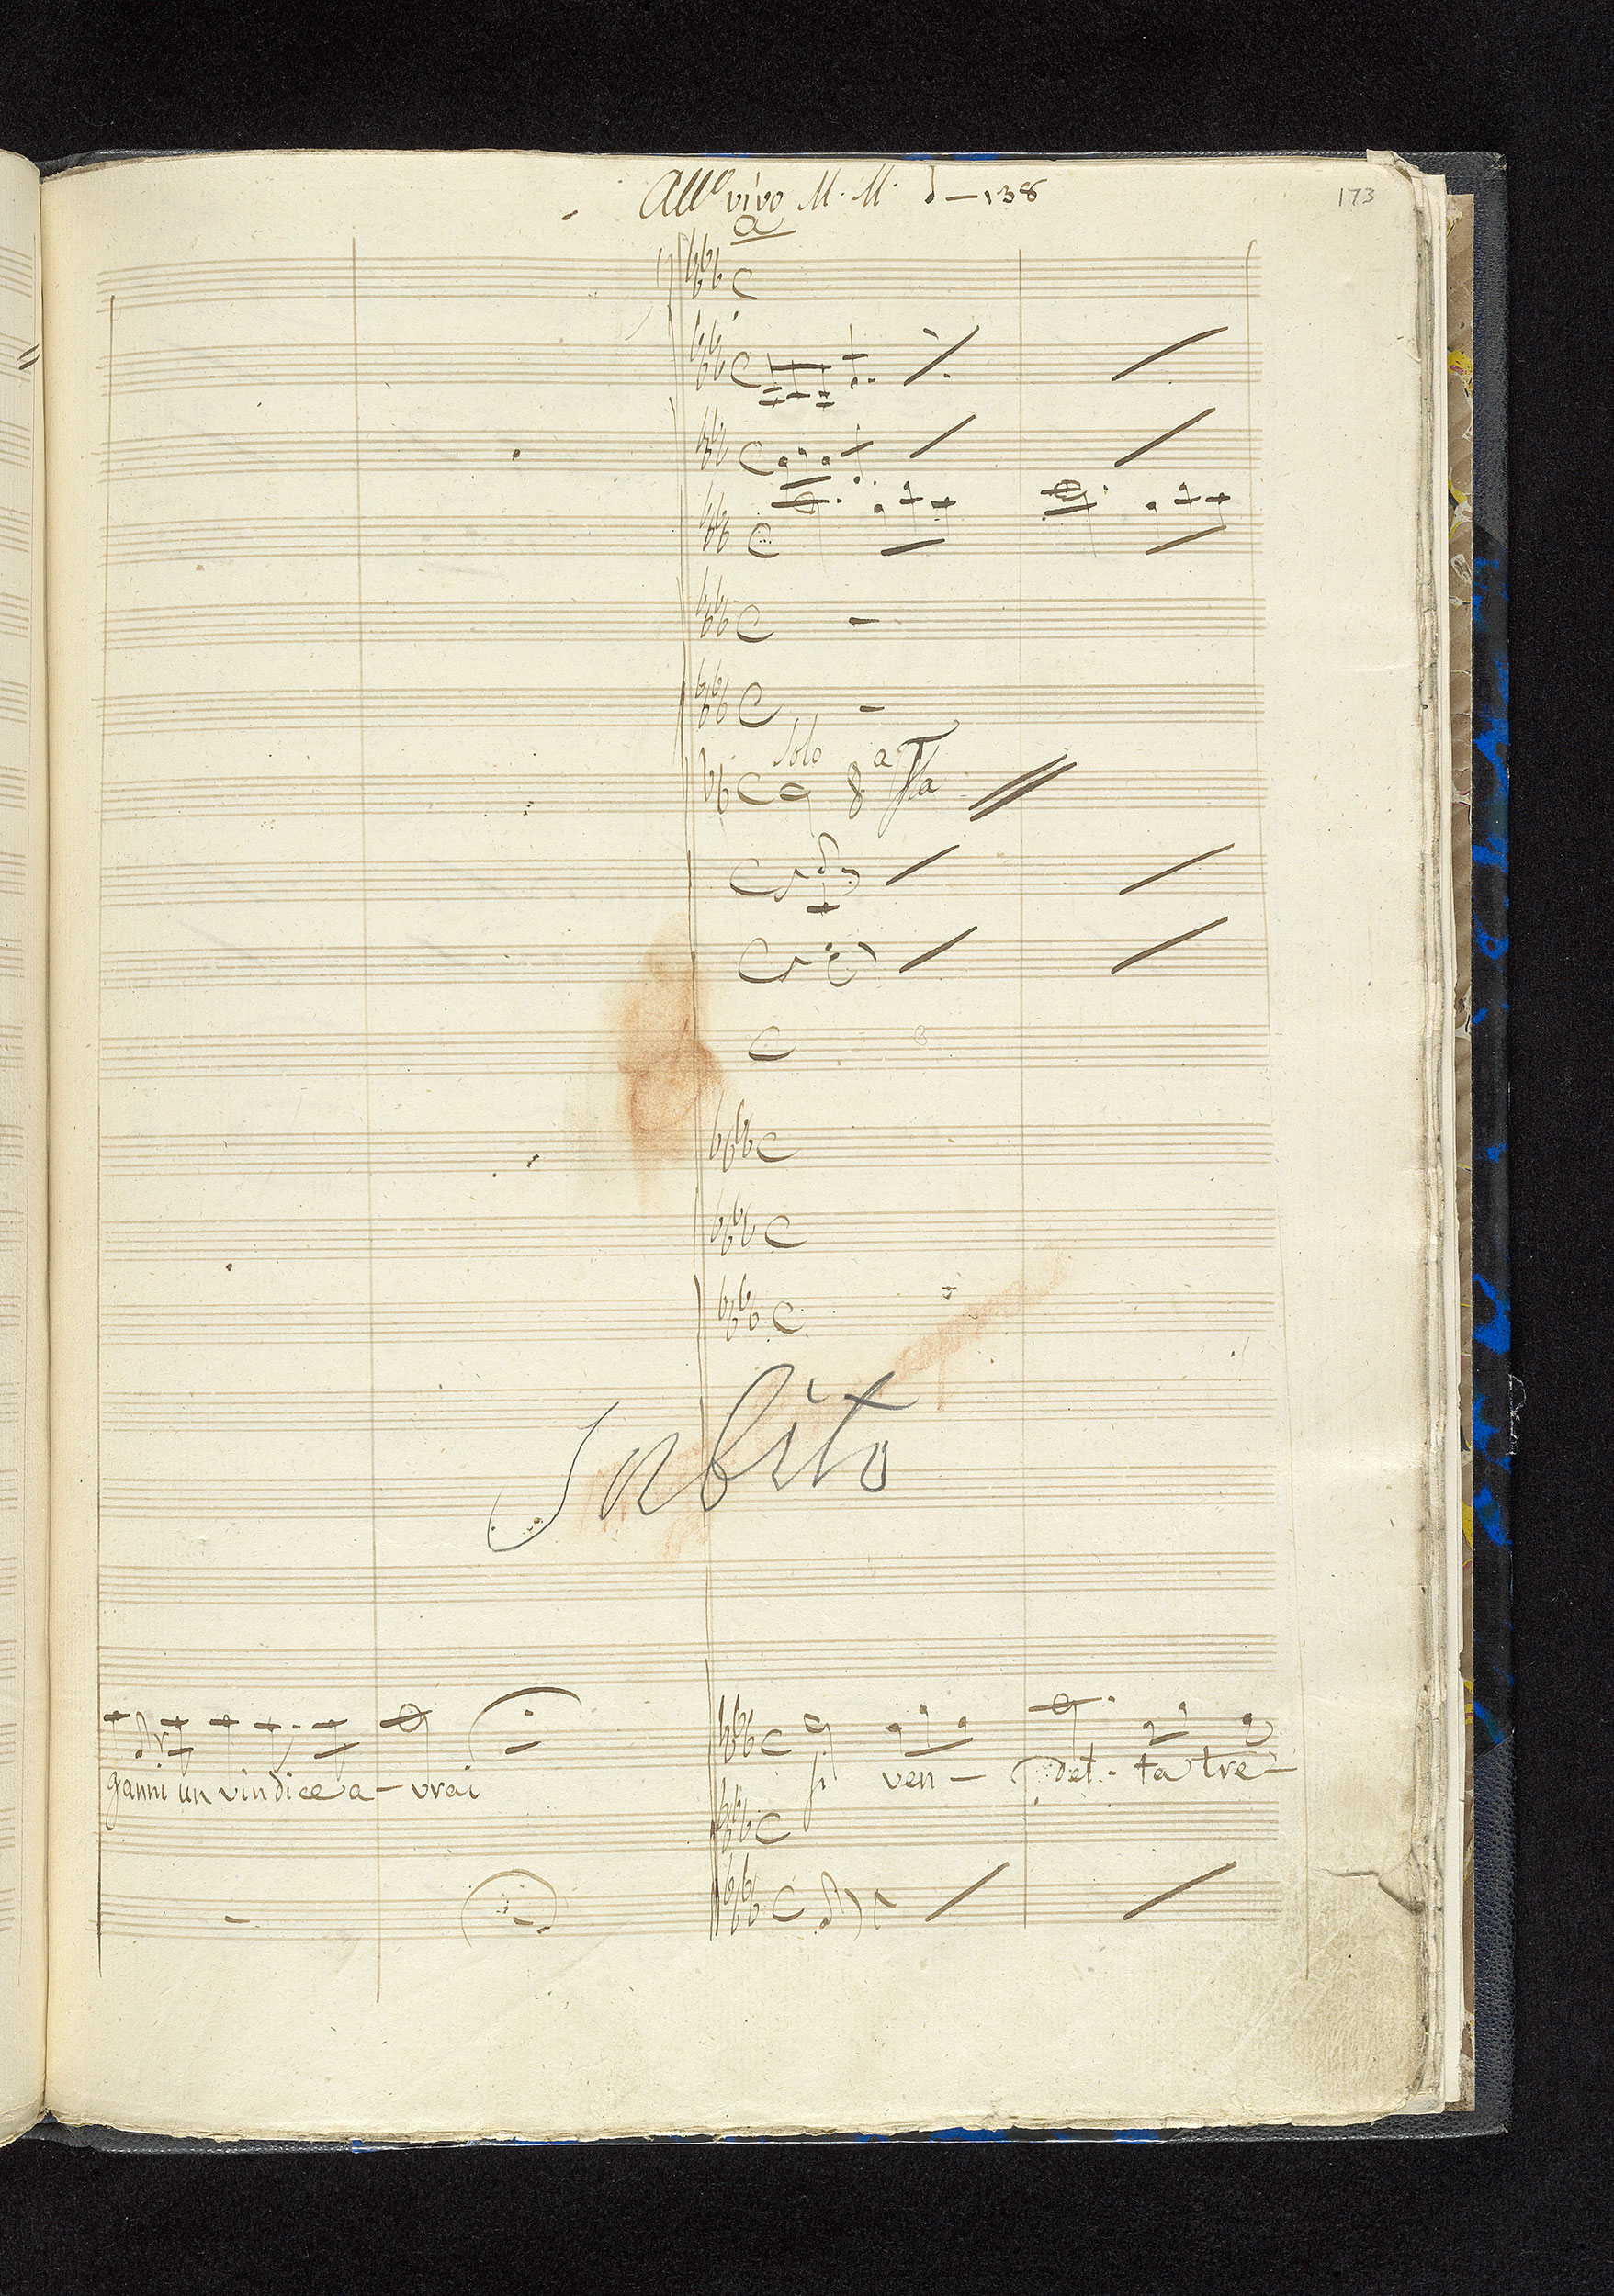 All.º vivo M. M. 𝅗𝅥 – 138
173
a
Solo
8ª Fa
Subito
ganni un vindice a – vrai
si ven – det – ta tre –